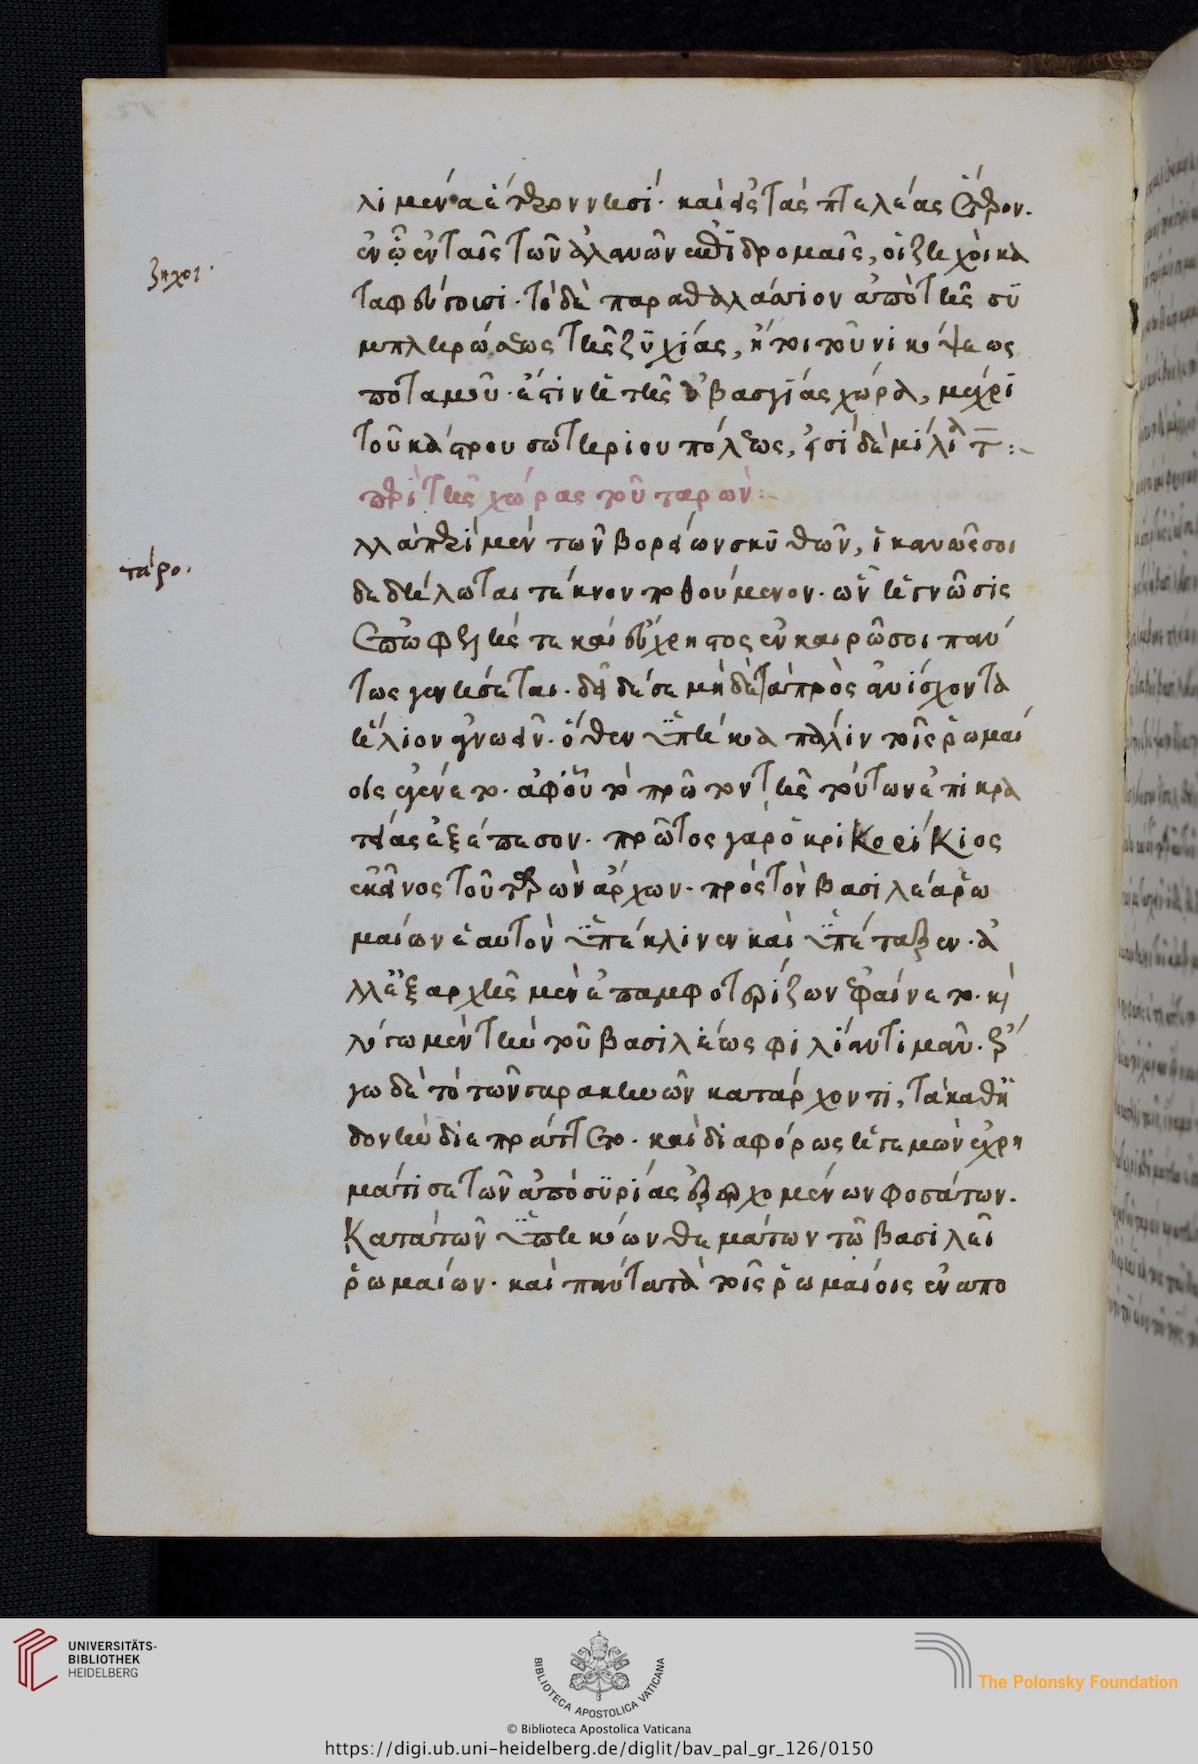 λιμενα ἕτερον νησί· καὶ εἰς τὰς πτελέας ἕτερον.
ἐν ὧ ἐν ταῖς τῶν ἀλανῶν ἐπιδρομαῖς, οἱ ζηχοὶ κα
ζηχοι·
ταφεύγουσι· τὸ δὲ παραθαλάσσιον ἀπὸ τῆς συ
μπληρώσεως τῆς ζυχίας, ἤτοι τοῦ νικόψεως
ποταμοῦ· ἐστὶν ἡ τῆς ἀβασγίας χώρα, μέχρι
τοῦ κάστρου σωτηριουπόλεως, εἰσὶ δὲ μίλια τ:
περὶ τῆς χώρας τοῦ ταρων:
λλὰ περὶ μὲν τῶν βορείων σκυθῶν, ἱκανῶς σοι
ταρο.
δεδήλωται τέκνον ποθούμενον· ὧν ἡ γνῶσις
ἐπωφελής τε καὶ εὔχρηστος ἐν καιρῶ σοι πάν
τως γενήσεται· δεῖ δέ σε μὴ δὲ τὰ πρὸς ἀνίσχοντα
ἥλιον ἀγνοεῖν· ὅθεν ὑπήκοα πάλιν τοῖς ῥωμαί
οις ἐγένετο· ἀφοῦ τὸ πρῶτον τῆς τούτων ἐπικρα
τείας ἐξέπεσον· πρῶτος γὰρ ὁ κρικορίκιος
ἐκεῖνος τοῦ ταρὼν ἄρχων· πρὸς τὸν βασιλέα ῥω
μαίων ἑαυτὸν ὑπέκλινεν καὶ ὑπέταξεν· ἀ
λλ' ἐξ ἀρχῆς μὲν ἐπαμφοτερίζων ἐφαίνετο· κὶ
λόγω μὲν τὴν τοῦ βασιλέως φιλίαν τιμᾶν· ἔρ
γω δὲ τὸ τῶν σαρακηνῶν κατάρχοντι, τὰ καθ' ἡ
δονὴν διεπράττετο· καὶ διαφόρως ἡγεμὼν ἐχρη
μάτισε τῶν ἀπὸ συρίας ἐξερχομένων φοσάτων.
Κατὰ τῶν ὑπηκόων θεμάτων τῶ βασιλεῖ
ῥωμαίων· καὶ πάντα τὰ τοῖς ῥωμαίοις ἐν ἀπο
UNIVERSITÄTS-
BIBLIOTHEK
HEIDELBERG
BIBLIOTECA APOSTOLICA VATICANA
The Polonsky Foundation
© Biblioteca Apostolica Vaticana
https://digi.ub.uni-heidelberg.de/diglit/bav_pal_gr_126/0150